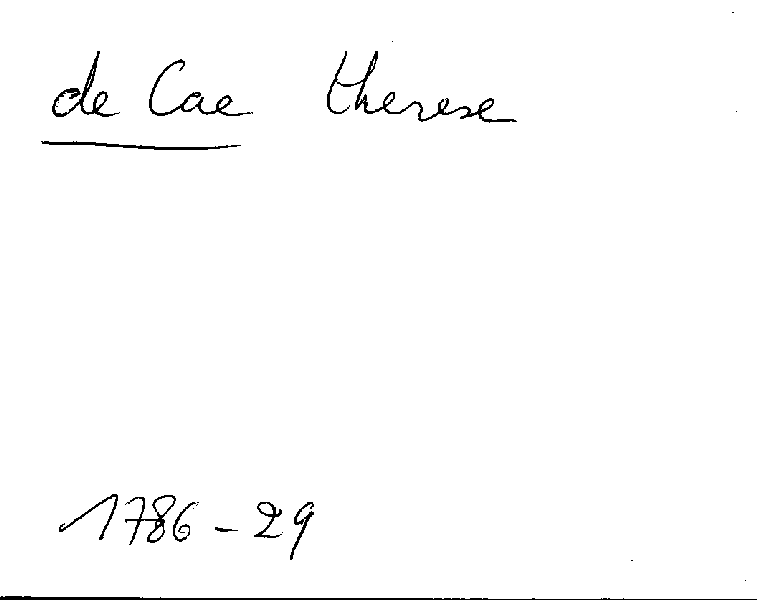 de Cae therese
1786-29